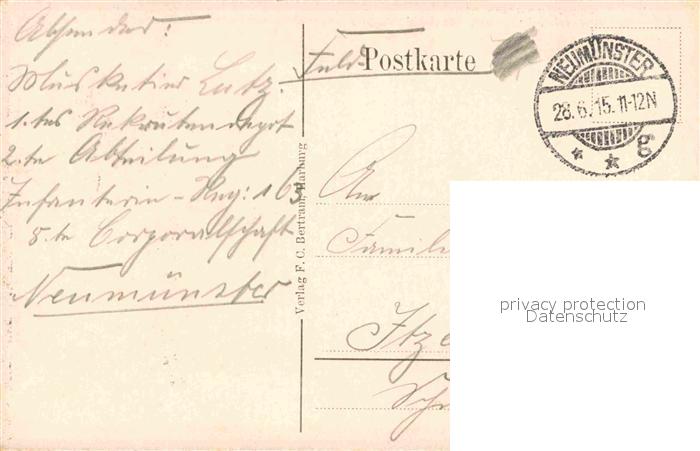 Absender:
Musketier Lutz.
1.tes Rekrutendepot
2.te Abteilung
Infanterie-Reg: 163
5.te Corporalschaft
Neumünster
Feld Postkarte
NEUMÜNSTER
28.6.15.11-12N
* * g
Verlag F. C. Bertram, Harburg
An
Famili
Itze
privacy protection
Datenschutz